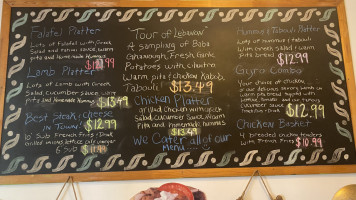 Falafel Platter
Lots of Falafel with Greek
Salad and tahini sauce, warm
pita and Homemade Hummus
$11.99
Lamb Platter
Lots of Lamb with Greek
Salad, Cucumber Sauce, warm
pita and Homemade Hummus $13.49
Best Steak & cheese
in Town! $12.99
10" Sub French Fries & Drink
6 Sub $11.99
Tour of Lebanon
A sampling of Baba
Ghanough, Fresh Garlic
Potatoes with Cilantro
Warm pita, chicken Kabob,
Tabouli $13.49
Chicken Platter
Grilled chicken with Greek
Salad, Cucumber Sauce, Warm
Pita and homemade hummus
$13.49
We Cater all of our
Menu
Hummus & Tabouli Platter
Lots of Hummus &
Tabouli with
Greek Salad & warm
pita bread $12.99
Gyro Combo
Your choice of chicken
or our delicious savory lamb on
warm pita bread topped with
lettuce, tomato and our creamy
cucumber sauce
French Fries & Drink $12.99
Chicken Basket
4 breaded chicken tenders
with French Fries $10.99